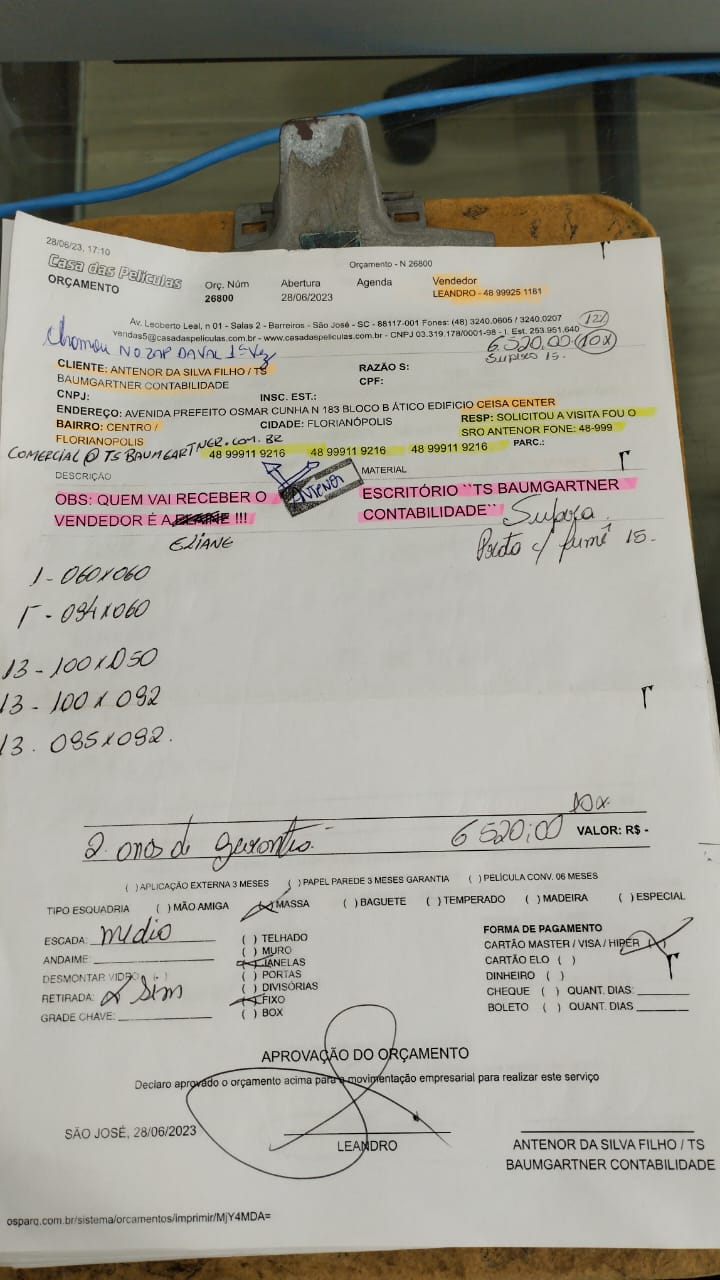 28/06/23, 17:10
Orçamento - N 26800
Casa das Películas
ORÇAMENTO
Orç. Núm
26800
Abertura
28/06/2023
Agenda
Vendedor
LEANDRO - 48 99925 1161
Av. Leoberto Leal, n 01 - Salas 2 - Barreiros - São José - SC - 88117-001 Fones: (48) 3240.0605 / 3240.0207
vendas5@casadaspeliculas.com.br - www.casadaspeliculas.com.br - CNPJ 03.319.178/0001-98 - I. Est. 253.951.640
12x
6.520,00 10x
15.
Chamou NO ZAP DAVAL 1ª Vez
CLIENTE: ANTENOR DA SILVA FILHO / TS
BAUMGARTNER CONTABILIDADE
RAZÃO S:
CPF:
CNPJ:
INSC. EST.:
ENDEREÇO: AVENIDA PREFEITO OSMAR CUNHA N 183 BLOCO B ÁTICO EDIFICIO CEISA CENTER
BAIRRO: CENTRO /
FLORIANOPOLIS
CIDADE: FLORIANÓPOLIS
RESP: SOLICITOU A VISITA FOU O
SRO ANTENOR FONE: 48-999
COMERCIAL@TSBAUMGARTNER.COM.BR
48 99911 9216 48 99911 9216 48 99911 9216
PARC.:
DESCRIÇÃO
MATERIAL
Antenor
OBS: QUEM VAI RECEBER O
VENDEDOR É A !!!
ELIANE
ESCRITÓRIO ``TS BAUMGARTNER
CONTABILIDADE``
Preto c/ fumê 15.
1 - 060x060
1 - 094x060
13 - 100x050
13 - 100x092
13. 095x092.
10x
2 anos de garantia.
6520,00
VALOR: R$ -
( ) APLICAÇÃO EXTERNA 3 MESES ( ) PAPEL PAREDE 3 MESES GARANTIA ( ) PELÍCULA CONV. 06 MESES
TIPO ESQUADRIA ( ) MÃO AMIGA (x) MASSA ( ) BAGUETE ( ) TEMPERADO ( ) MADEIRA ( ) ESPECIAL
ESCADA: médio
ANDAIME:
DESMONTAR VIDRO: ( )
RETIRADA: x Sim
GRADE CHAVE:
( ) TELHADO
( ) MURO
(x) JANELAS
( ) PORTAS
( ) DIVISÓRIAS
(x) FIXO
( ) BOX
FORMA DE PAGAMENTO
CARTÃO MASTER / VISA / HIPER (x)
CARTÃO ELO ( )
DINHEIRO ( )
CHEQUE ( ) QUANT. DIAS:
BOLETO ( ) QUANT. DIAS
APROVAÇÃO DO ORÇAMENTO
Declaro aprovado o orçamento acima para a movimentação empresarial para realizar este serviço
SÃO JOSÉ, 28/06/2023
LEANDRO
ANTENOR DA SILVA FILHO / TS
BAUMGARTNER CONTABILIDADE
osparq.com.br/sistema/orcamentos/imprimir/MjY4MDA=